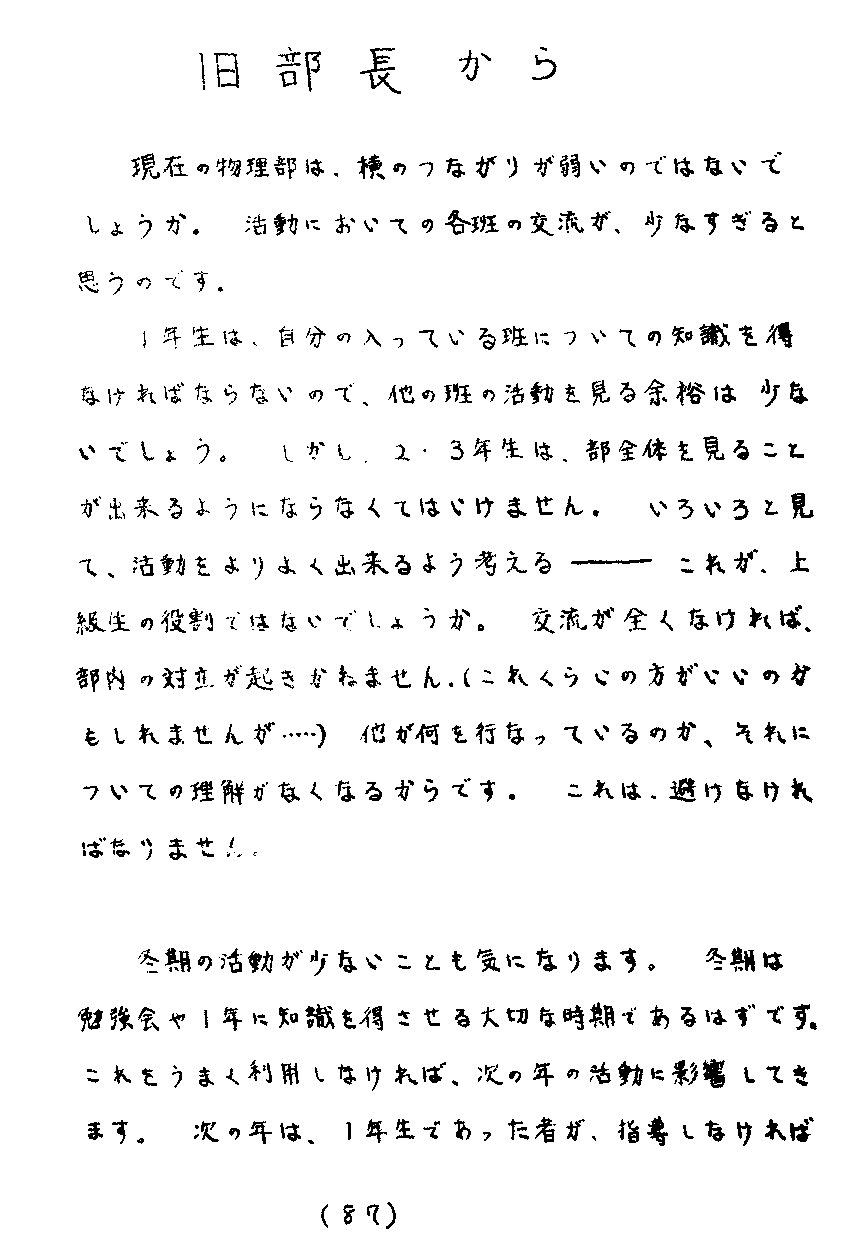 旧部長から
現在の物理部は、横のつながりが弱いのではないで
しょうか。 活動においての各班の交流が、少なすぎると
思うのです。
1年生は、自分の入っている班についての知識を得
なければならないので、他の班の活動を見る余裕は少な
いでしょう。 しかし、2・3年生は、部全体を見ること
が出来るようにならなくてはいけません。 いろいろと見
て、活動をよりよく出来るよう考える ―― これが、上
級生の役割ではないでしょうか。 交流が全くなければ、
部内の対立が起きかねません。(これくらいの方がいいのか
もしれませんが……) 他が何を行なっているのか、それに
ついての理解がなくなるからです。 これは、避けなけれ
ばなりません。
冬期の活動が少ないことも気になります。 冬期は
勉強会や1年に知識を得させる大切な時期であるはずです。
これをうまく利用しなければ、次の年の活動に影響してき
ます。 次の年は、1年生であった者が、指導しなければ
(87)